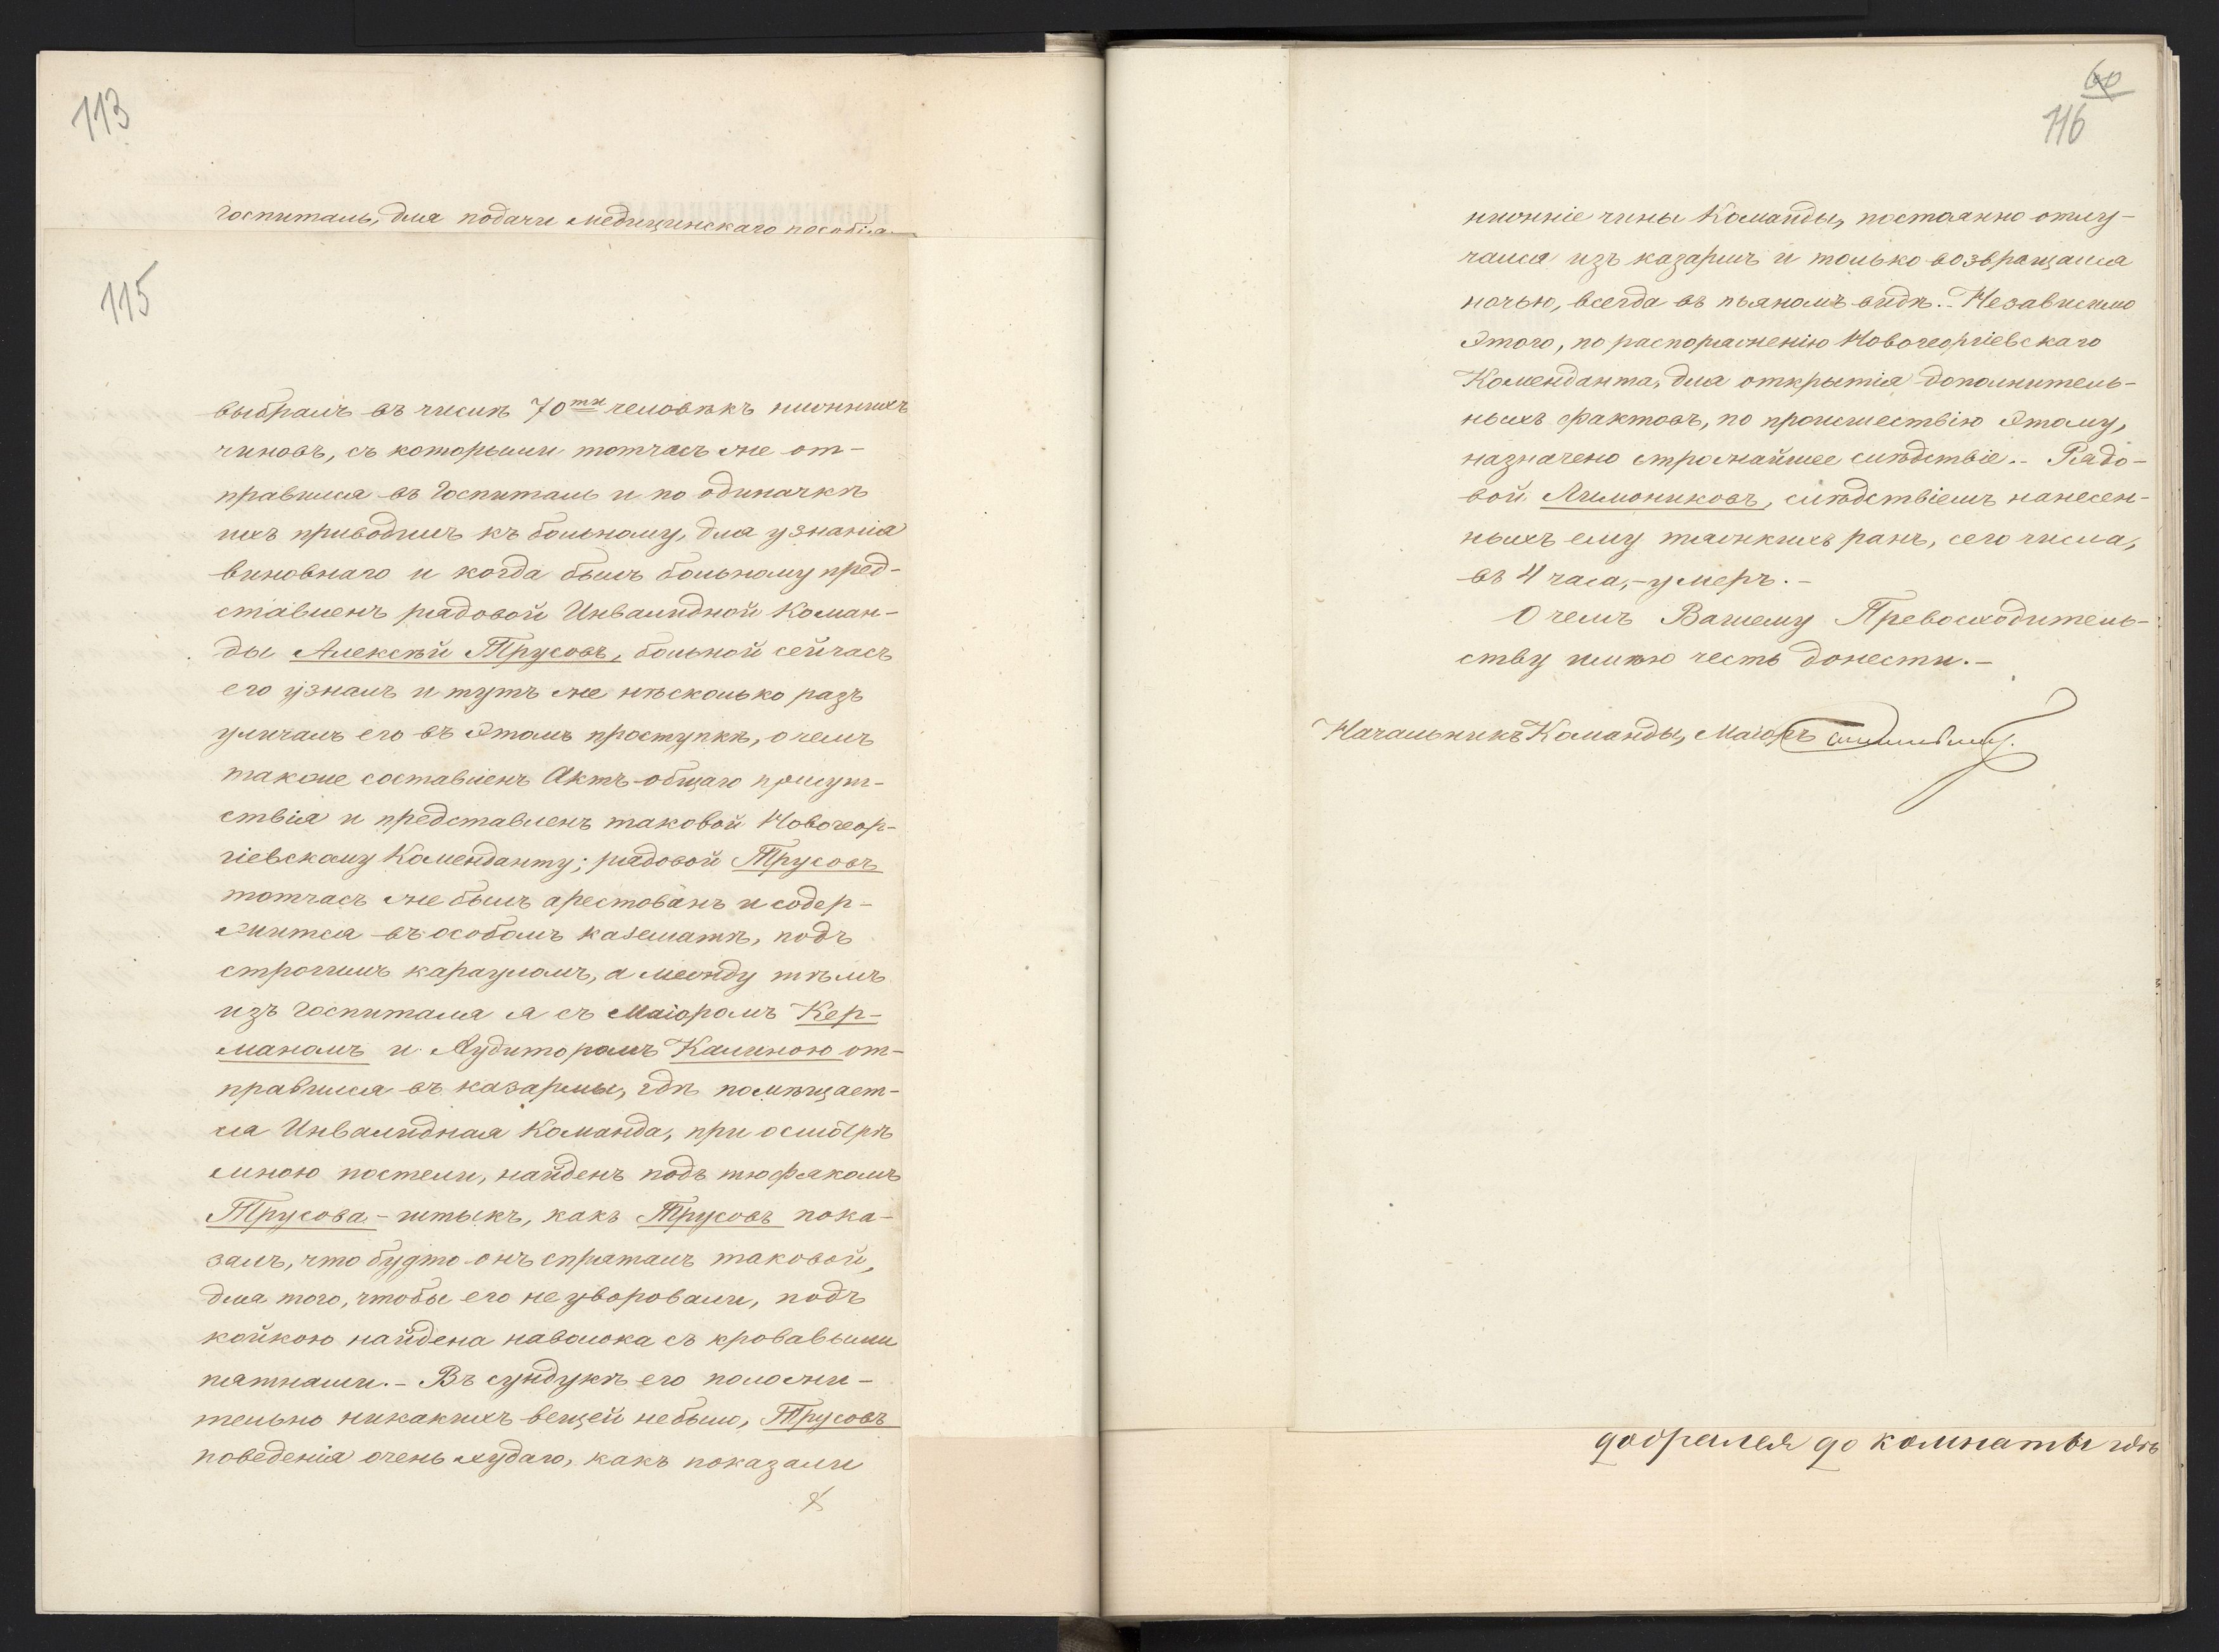 113
госпиталь, для подачи медицинскаго пособія.
115
выбралъ въ числѣ 70ти человѣкъ нижнихъ
чиновъ, съ которыми тотчасъ же от-
правился въ Госпиталь и по одиначкѣ
ихъ приводилъ къ больному, для узнанія
виновнаго и когда былъ больному пред-
ставленъ рядовой Инвалидной Коман-
ды Алексѣй Трусовъ, больной сейчасъ
его узналъ и тутъ же нѣсколько разъ
уличалъ его въ этомъ проступкѣ, о чемъ
также составленъ Актъ общаго присут-
ствія и представленъ таковой Новогеор-
гіевскому Коменданту; рядовой Трусовъ
тотчасъ же былъ арестованъ и содер-
жится въ особомъ казематѣ, подъ
строгимъ карауломъ, а между тѣмъ
изъ Госпиталя я съ Маіоромъ Кер-
маномъ и Аудиторомъ Калиною от-
правился въ казармы, гдѣ помѣщает-
ся Инвалидная Команда, при осмотрѣ
мною постели, найденъ подъ тюфякомъ
Трусова - штыкъ, какъ Трусовъ пока-
залъ, что будто онъ спряталъ таковой,
для того, чтобы его не уворовали, подъ
койкою найдена наволока съ кровавыми
пятнами. - Въ сундукѣ его положи-
тельно никакихъ вещей не было, Трусовъ
поведенія очень худаго, какъ показали
60
116
нижніе чины Команды, постоянно отлу-
чался изъ казармъ и только возвращался
ночью, всегда въ пьяномъ видѣ. - Независимо
этого, по распоряженію Новогеоргіевскаго
Коменданта, для открытія дополнитель-
ныхъ фактовъ, по происшествію этому,
назначено строжайшее слѣдствіе. - Рядо-
вой Лимониковъ, слѣдствіемъ нанесен-
ныхъ ему тяжкихъ ранъ, сего числа,
въ 4 часа, - умеръ. -
О чемъ Вашему Превосходитель-
ству имѣю честь донести. -
Начальникъ Команды, Маіоръ
добрался до комнаты гдѣ